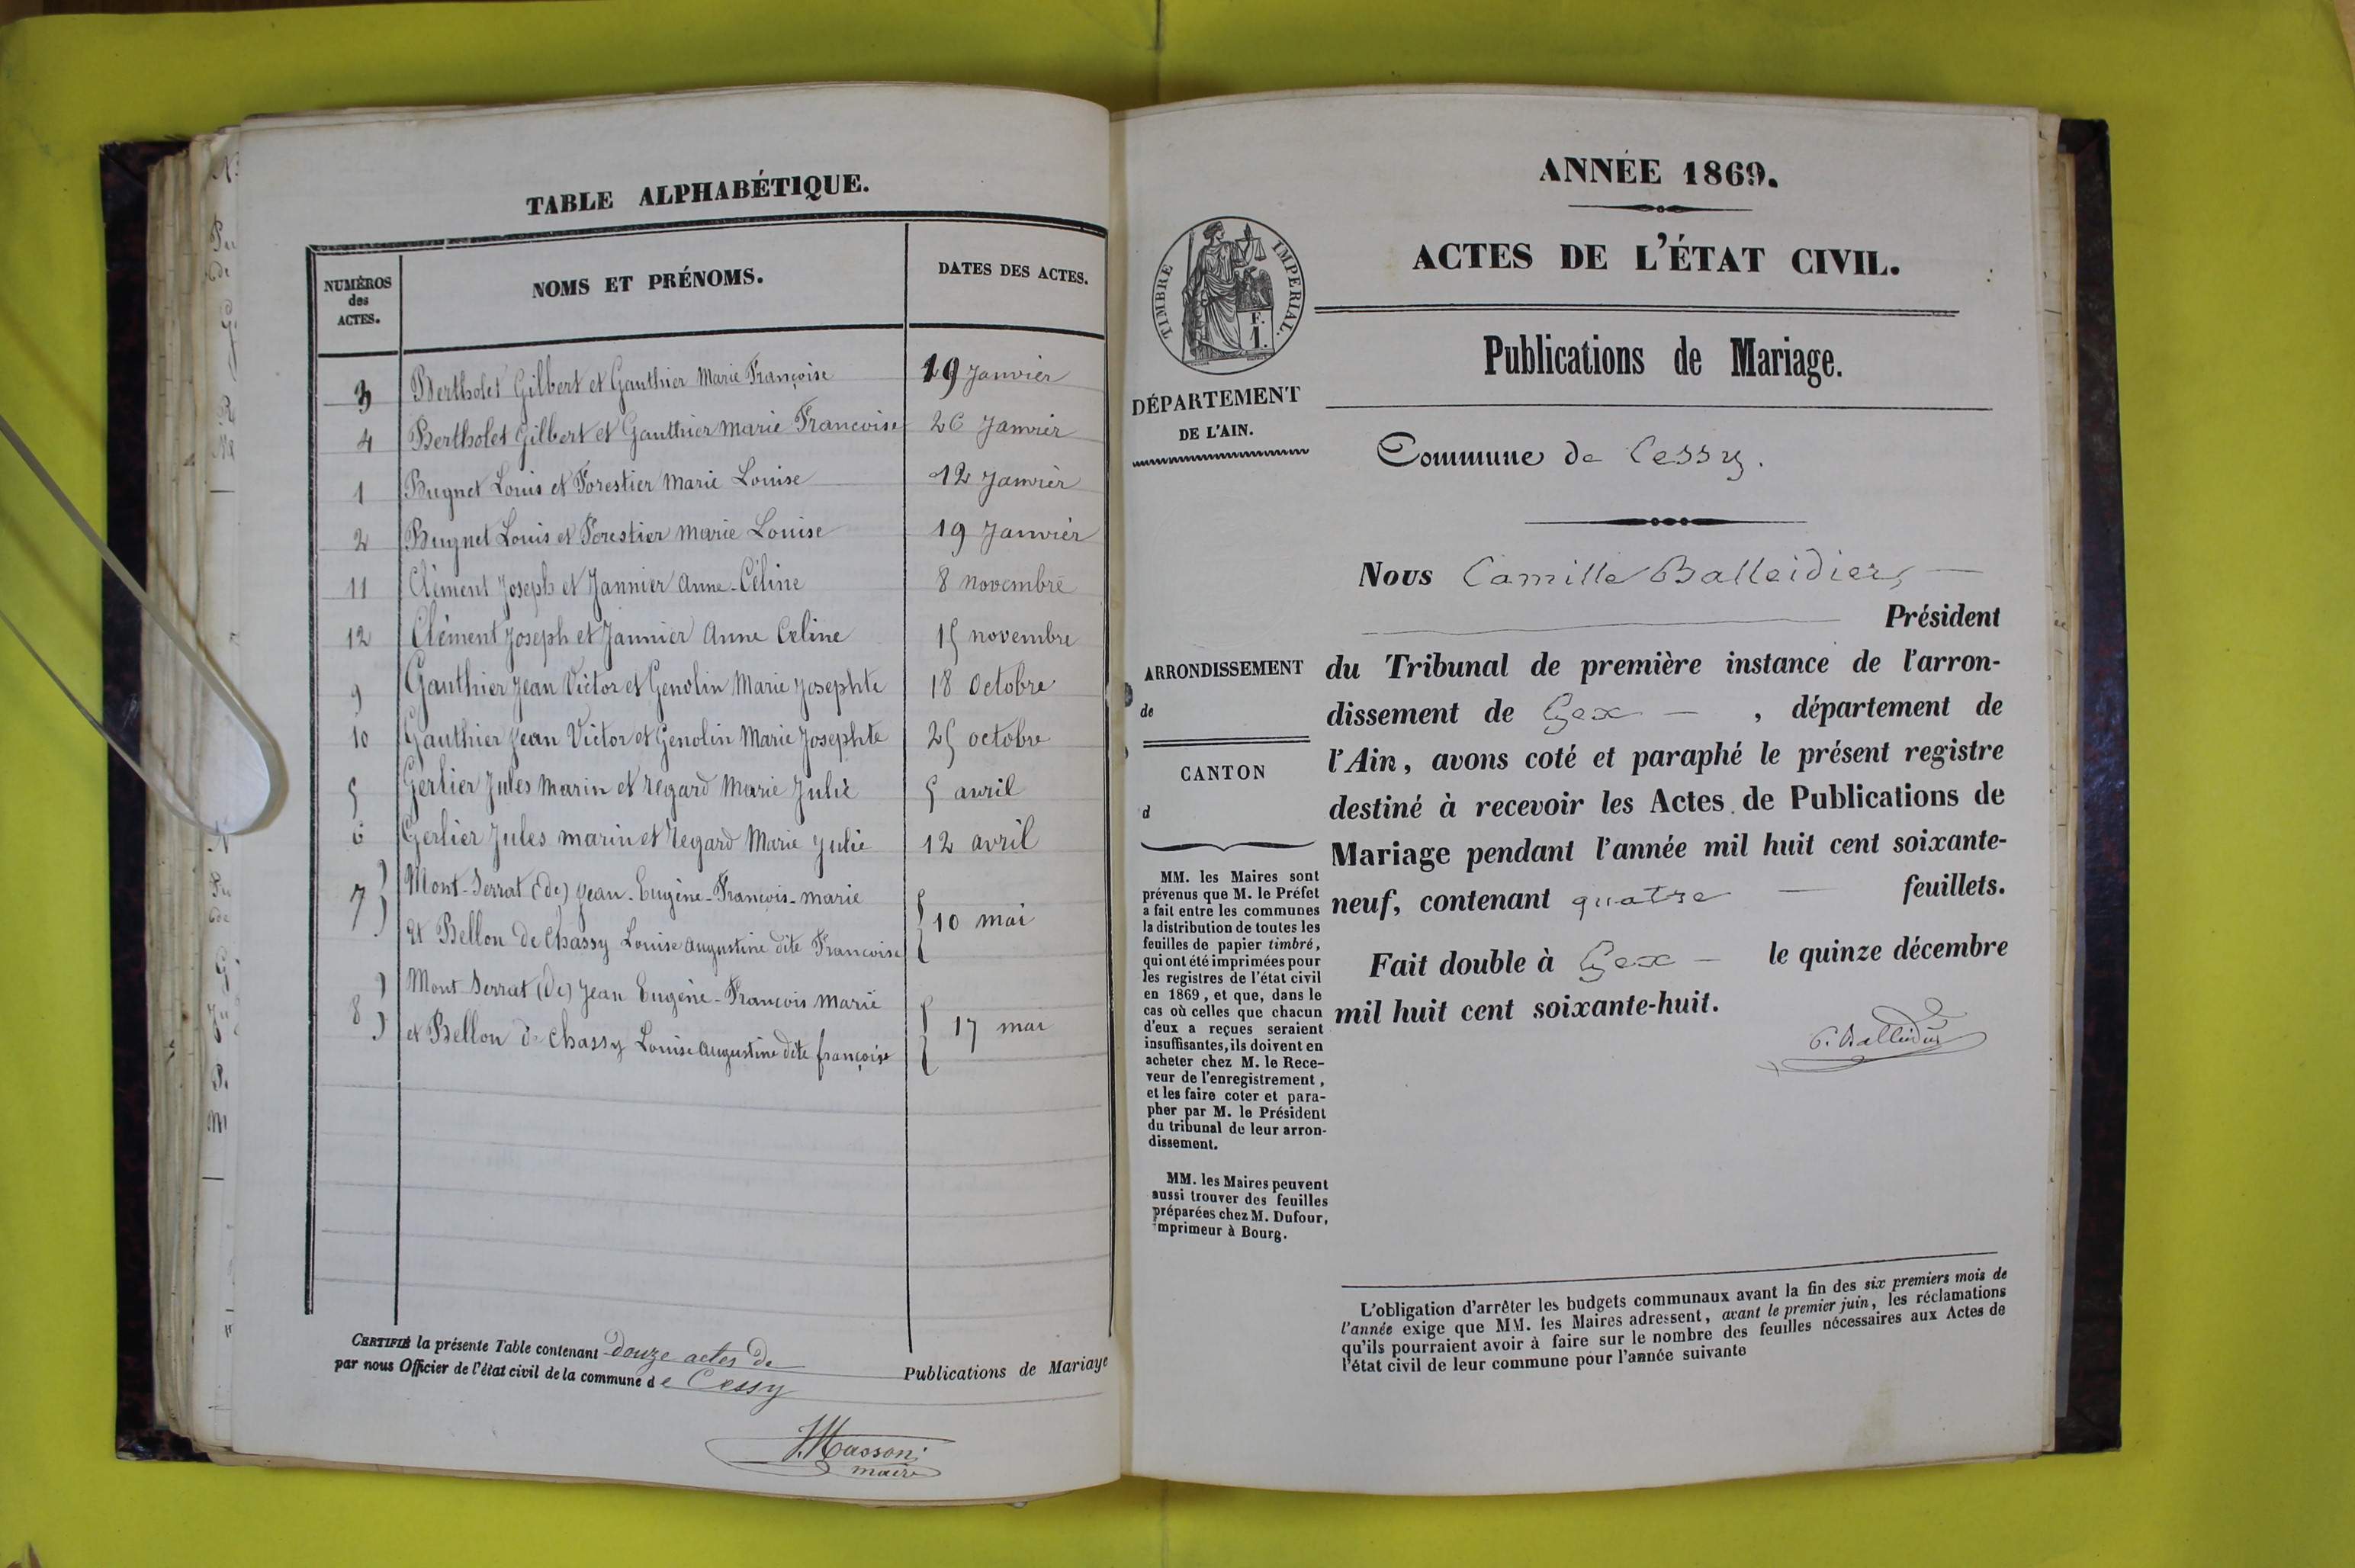 TABLE ALPHABÉTIQUE.
NUMÉROS
des
ACTES.
NOMS ET PRÉNOMS.
DATES DES ACTES.
3 Bertholet Gilbert et Gauthier Marie Françoise 19 Janvier
4 Bertholet Gilbert et Gauthier Marie Francoise 26 Janvier
1 Bugnet Louis et Forestier Marie Louise 12 Janvier
2 Bugnet Louis et Forestier Marie Louise 19 Janvier
11 Clément Joseph et Jannier Anne-Céline 8 novembre
12 Clément Joseph et Jannier Anne Celine 15 novembre
9 Gauthier Jean Victor et Genolin Marie Josephte 18 Octobre
10 Gauthier Jean Victor et Genolin Marie Josephte 25 octobre
5 Gerlier Jules Marin et Regard Marie Julie 5 avril
6 Gerlier Jules marin et Regard Marie Julie 12 avril
7 Mont-Serrat (de) Jean-Eugène-François-marie
et Bellon de Chassy Louise Augustine dite Francoise 10 mai
8 Mont Serrat (de) Jean Eugène-Francois Marie
et Bellon de chassy Louise Augustine dite françoise 17 mai
CERTIFIÉ la présente Table contenant douze actes de Publications de Mariage
par nous Officier de l'état civil de la commune de Cessy
Masson
maire
ANNÉE 1869.
ACTES DE L'ÉTAT CIVIL.
TIMBRE IMPERIAL.
F.
1.
Publications de Mariage.
DÉPARTEMENT
DE L'AIN.
Commune de Cessy.
Nous Camille Balleidier,
Président
ARRONDISSEMENT
de
CANTON
d
du Tribunal de première instance de l'arron-
dissement de Gex , département de
l'Ain, avons coté et paraphé le présent registre
destiné à recevoir les Actes de Publications de
Mariage pendant l'année mil huit cent soixante-
neuf, contenant quatre feuillets.
Fait double à Gex le quinze décembre
mil huit cent soixante-huit.
C. Balleidier
MM. les Maires sont
prévenus que M. le Préfet
a fait entre les communes
la distribution de toutes les
feuilles de papier timbré,
qui ont été imprimées pour
les registres de l'état civil
en 1869, et que, dans le
cas où celles que chacun
d'eux a reçues seraient
insuffisantes, ils doivent en
acheter chez M. le Rece-
veur de l'enregistrement,
et les faire coter et para-
pher par M. le Président
du tribunal de leur arron-
dissement.
MM. les Maires peuvent
aussi trouver des feuilles
préparées chez M. Dufour,
imprimeur à Bourg.
L'obligation d'arrêter les budgets communaux avant la fin des six premiers mois de
l'année exige que MM. les Maires adressent, avant le premier juin, les réclamations
qu'ils pourraient avoir à faire sur le nombre des feuilles nécessaires aux Actes de
l'état civil de leur commune pour l'année suivante